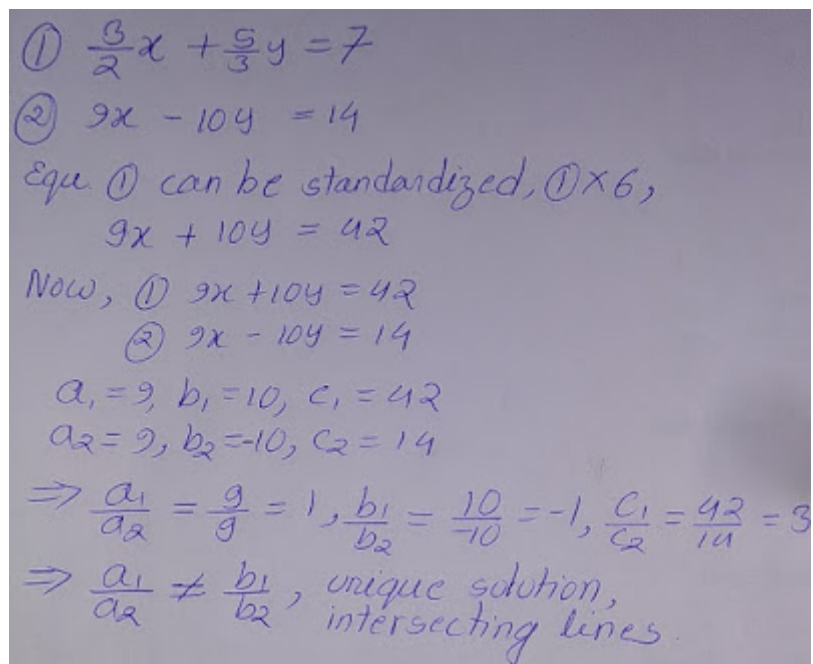 ① 3/2 x + 5/3 y = 7
② 9x - 10y = 14
Equ. ① can be standardized, ①×6,
9x + 10y = 42
Now, ① 9x + 10y = 42
② 9x - 10y = 14
a₁ = 9, b₁ = 10, c₁ = 42
a₂ = 9, b₂ = -10, c₂ = 14
⇒ a₁/a₂ = 9/9 = 1, b₁/b₂ = 10/-10 = -1, c₁/c₂ = 42/14 = 3
⇒ a₁/a₂ ≠ b₁/b₂, unique solution,
intersecting lines.